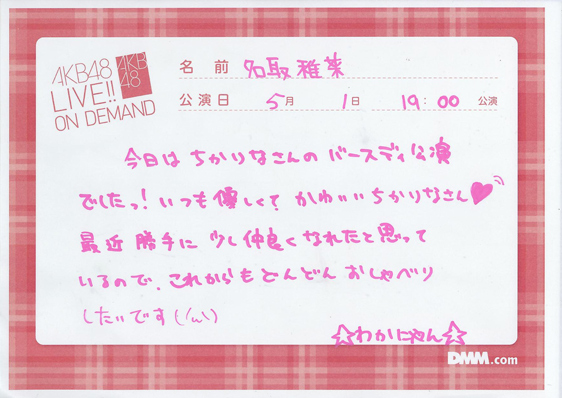 AKB48
LIVE!!
ON DEMAND
AKB
48
名 前 名取稚菜
公演日 5月 1日 19:00 公演
今日は ちかりなさんの バースディ公演
でしたっ! いつも優しくて かわいいちかりなさん♥
最近 勝手に 少し仲良くなれたと思って
いるので、これからもどんどん おしゃべり
したいです (・ω・)
☆わかにゃん☆
DMM.com